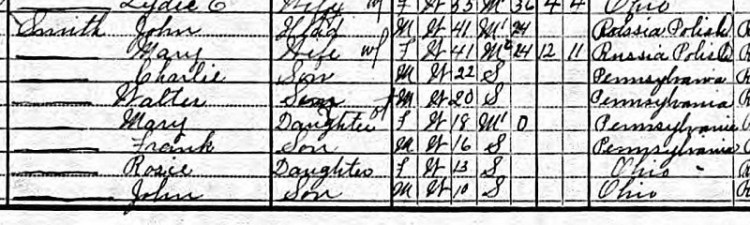 Lydie C Wife F W 35 M 36 4 4 Ohio
Smith John Head M W 41 M1 24 Russia Polish
Mary Wife F W 41 M1 24 12 11 Russia Polish
Charlie Son M W 22 S Pennsylvania
Walter Son M W 20 S Pennsylvania
Mary Daughter F W 18 M1 0 Pennsylvania
Frank Son M W 16 S Pennsylvania
Rosie Daughter F W 13 S Ohio
John Son M W 10 S Ohio